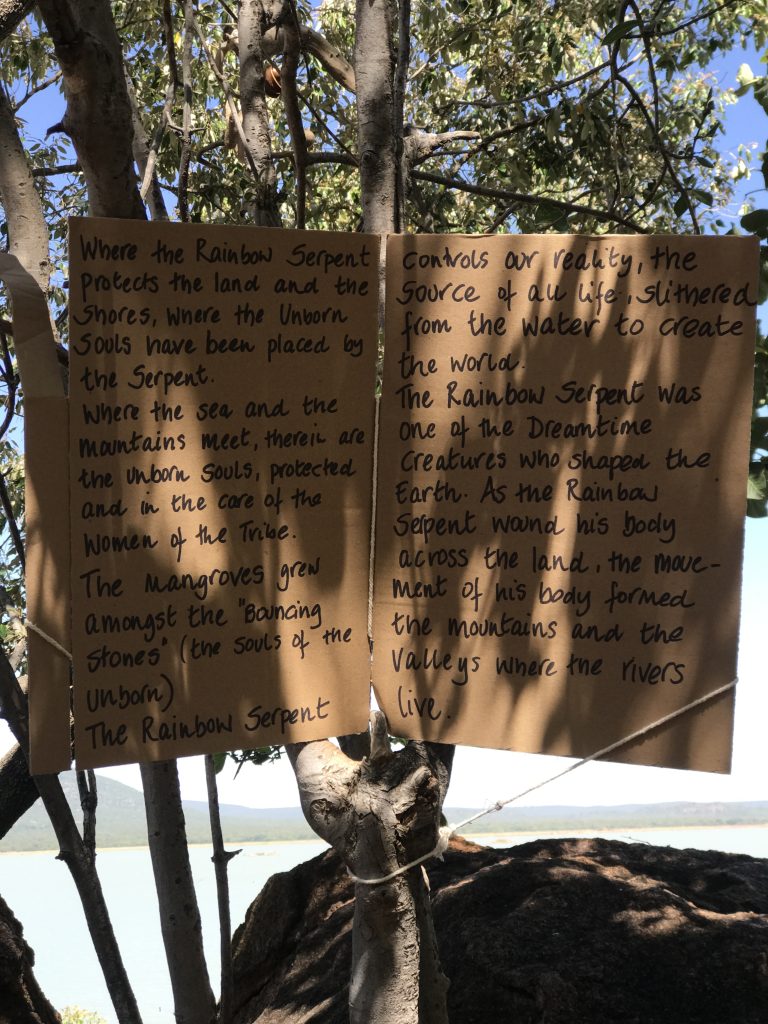 Where the Rainbow Serpent
protects the land and the
shores, where the Unborn
Souls have been placed by
the Serpent.
Where the sea and the
mountains meet, therein are
the unborn souls, protected
and in the care of the
Women of the Tribe.
The Mangroves grew
amongst the "Bouncing
Stones" (the souls of the
unborn)
The Rainbow Serpent
controls our reality, the
Source of all life, slithered
from the water to create
the world.
The Rainbow Serpent was
one of the Dreamtime
Creatures who shaped the
Earth. As the Rainbow
Serpent wound his body
across the land, the move-
ment of his body formed
the mountains and the
Valleys where the rivers
live.